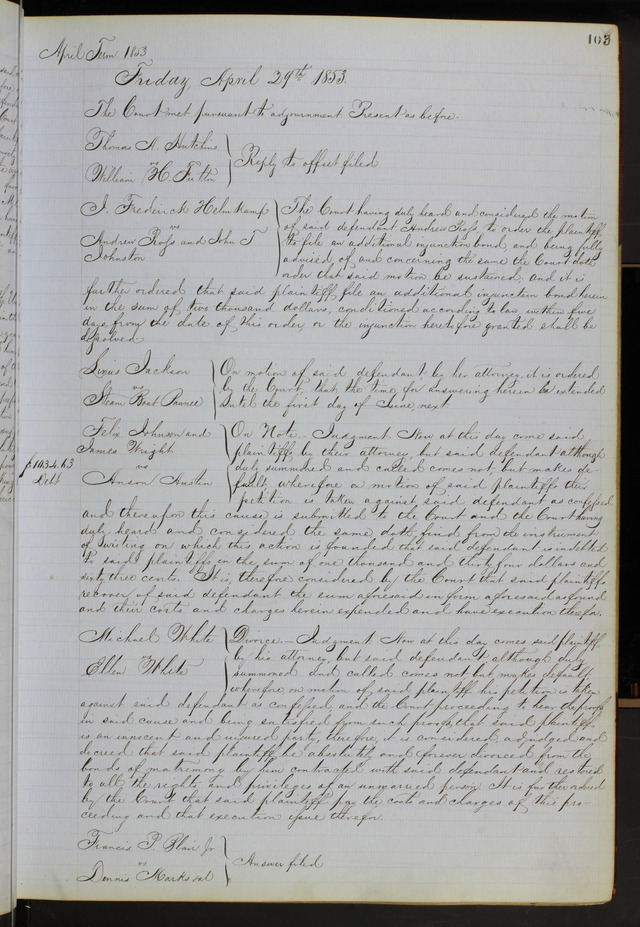 103
April Term 1853
Friday April 29th 1853.
The Court met pursuant to adjournment Present as before.
Thomas A. Hutchins
vs
William H. Tuttin
Reply to offset filed
J. Frederick Helmkamp
vs
Andrew Ross and John T
Johnston
The Court having duly heard and considered the motion
of said defendant Andrew Ross, to order the plaintiff
to file an additional injunction bond, and being fully
advised of and concerning the same the Court doth
order that said motion be sustained, and it is
further ordered that said plaintiff file an additional injunction bond herein
in the sum of two thousand dollars, conditioned according to law within five
days from the date of this order, or the injunction heretofore granted shall be
dissolved
Jackson
vs
Steam Boat Pawnee
On motion of said defendant by her attorney, it is ordered
by the Court that the time for answering herein be extended
until the first day of June next.
Felix Johnson and
James Wright
vs
Anson Austin
$1034.63
Debt
On Note – Judgment. Now at this day come said
plaintiffs by their attorney, but said defendant although
duly summoned and called comes not, but makes de-
fault, wherefore on motion of said plaintiffs their
petition is taken against said defendant as confessed
and thereupon this cause is submitted to the Court and the Court having
duly heard and considered the same, doth find from the instrument
of writing on which this action is founded that said defendant is indebted
to said plaintiffs in the sum of one thousand and thirty four dollars and
sixty three cents. It is, therefore considered by the Court that said plaintiffs
recover of said defendant the sum aforesaid in form aforesaid as found
and their costs and charges herein expended and have execution therefor.
Michael White
vs
Ellen White
Divorce – Judgment Now at this day comes said plaintiff
by his attorney, but said defendant although duly
summoned and called comes not but makes default,
wherefore on motion of said plaintiff his petition is taken
against said defendant as confessed, and the Court proceeding to hear the proofs
in said cause and being satisfied from such proofs, that said plaintiff
is an innocent and injured party, therefore, it is considered, adjudged and
decreed that said plaintiff be absolutely and forever divorced from the
bonds of matrimony by him contracted with said defendant and restored
to all the rights and privileges of an unmarried person It is further ordered
by the Court that said plaintiff pay the costs and charges of the pro-
ceeding and that execution issue therefor.
Francis P. Blair Jr
vs
Dennis Marks et al
Answer filed